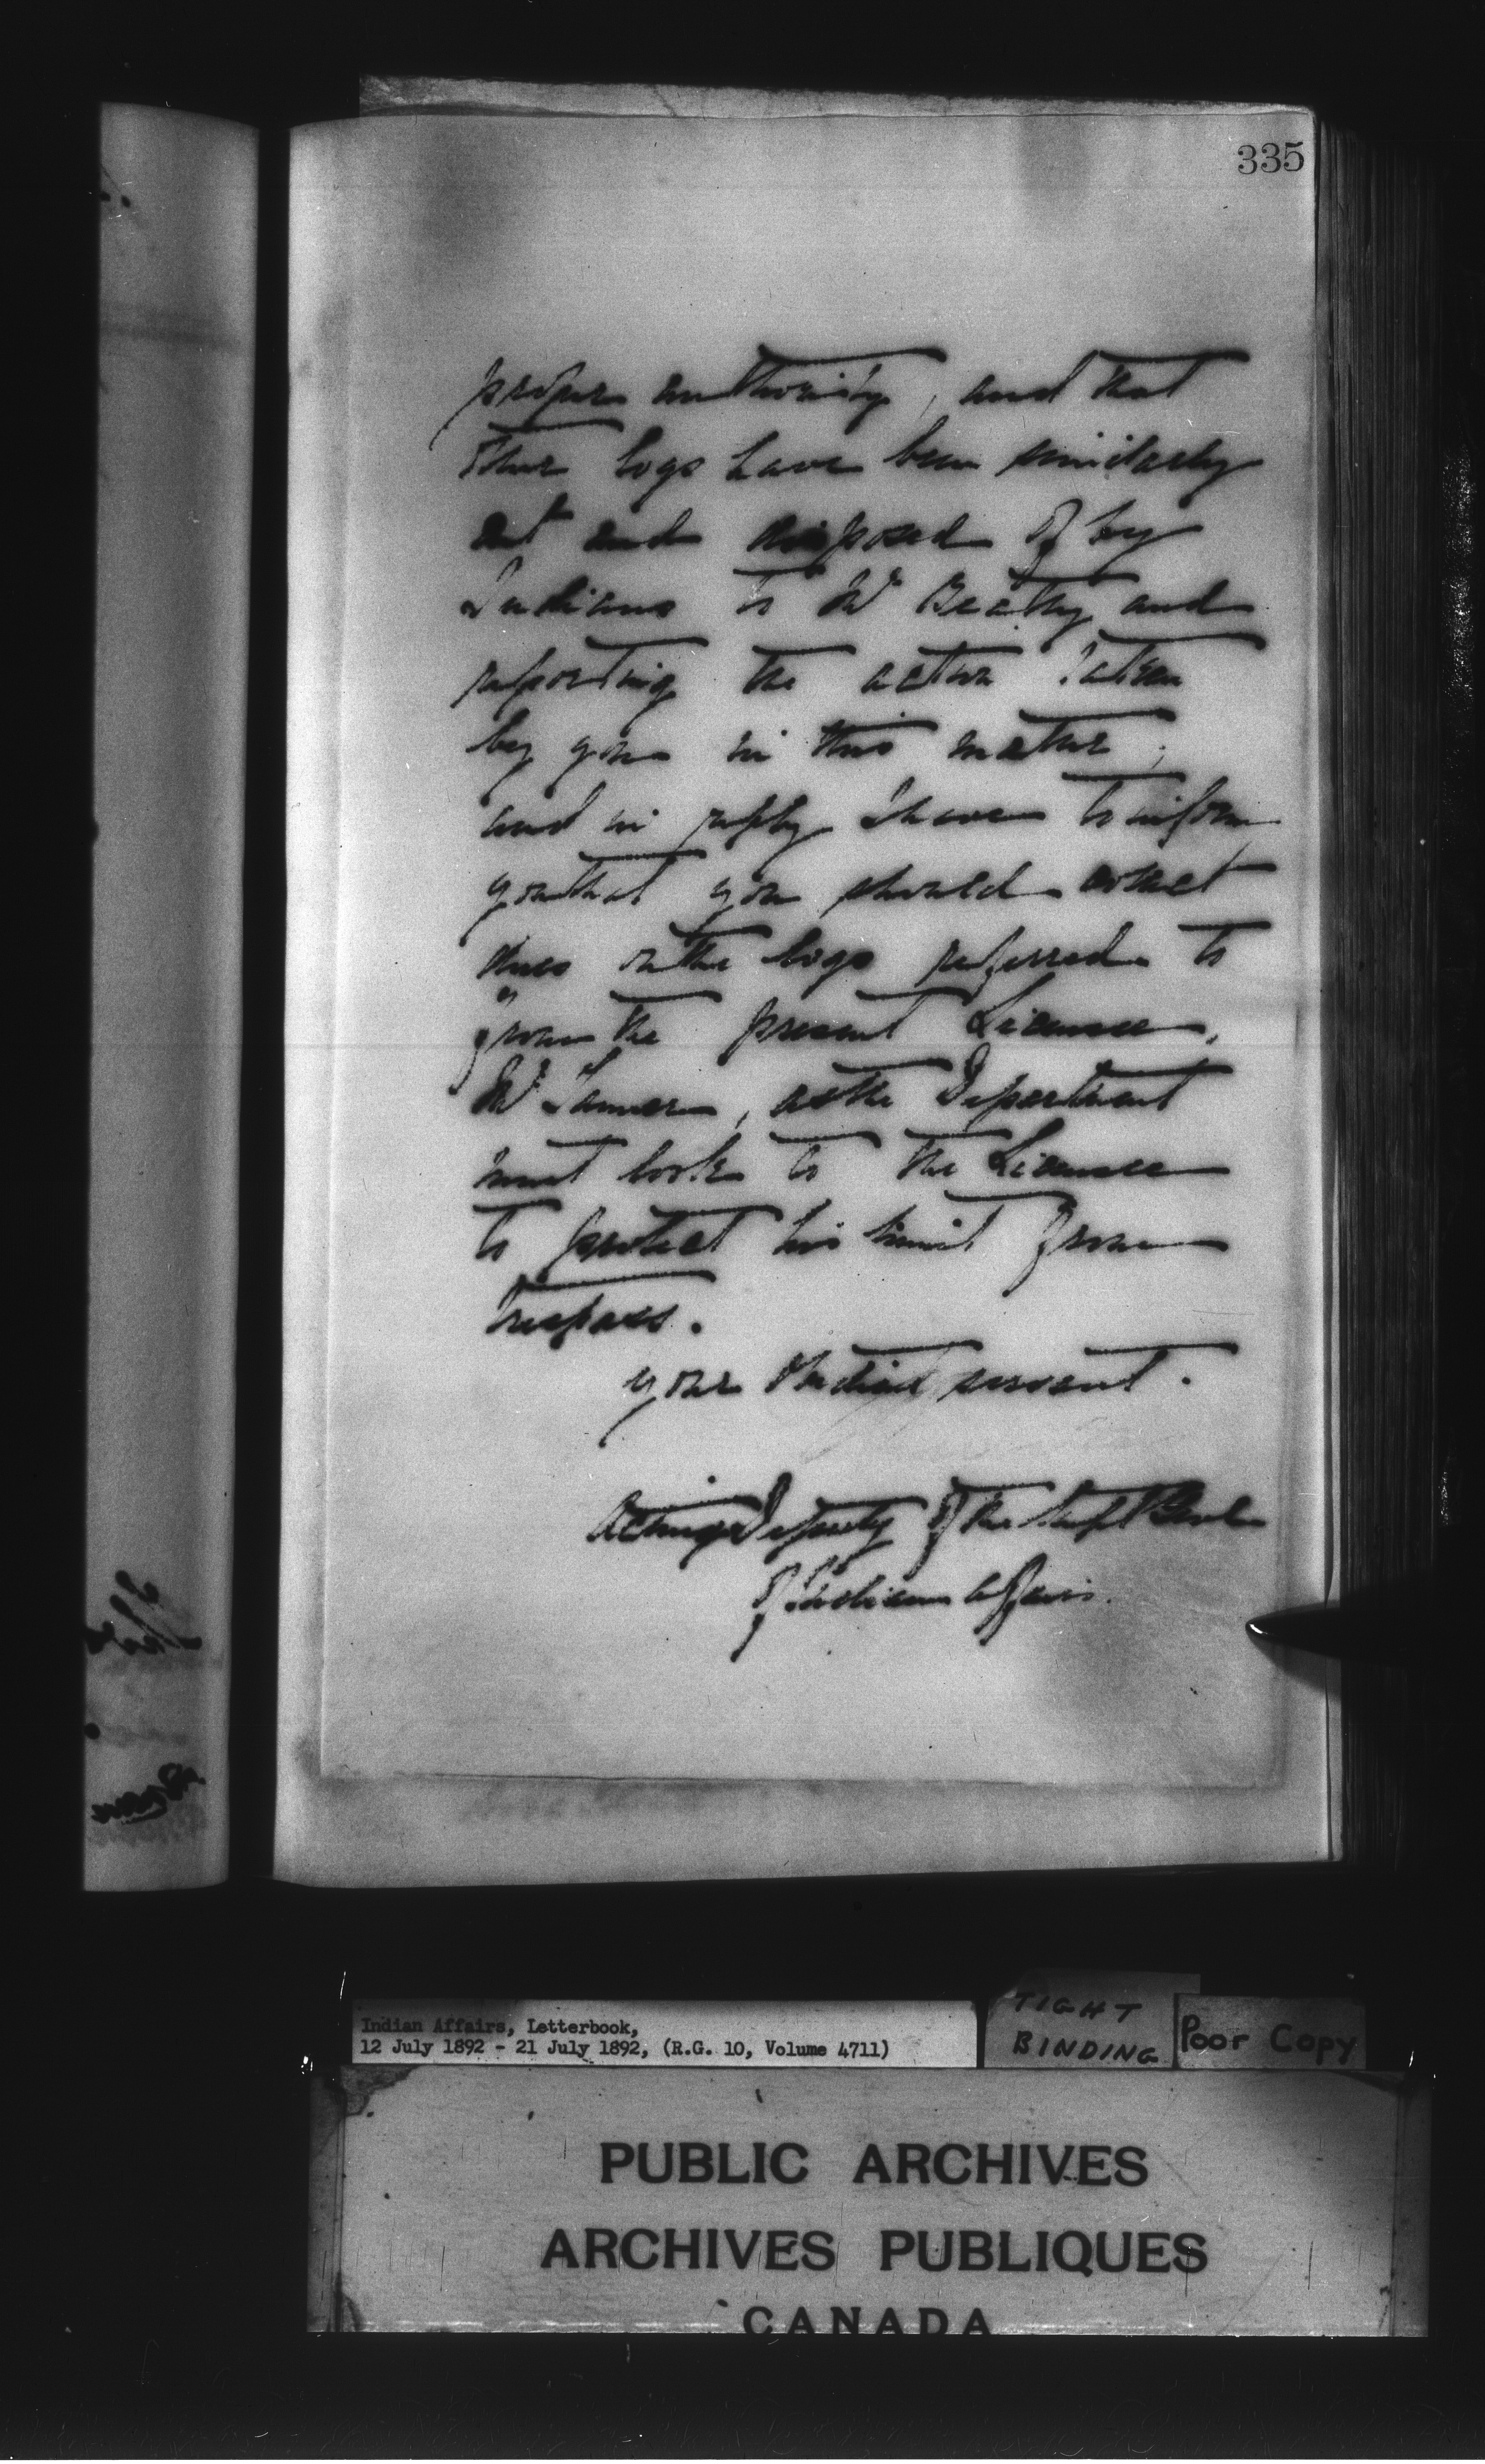 335
proper authority, and that
other logs have been similarly
cut and disposed of by
Indians to Mr Beatty and
reporting the action taken
by you in this matter,
and in reply I have to inform
you that you should collect
dues on the logs referred to
from the present Licensee,
Mr, as the Department
must look to the Licensee
to protect his limit from
trespass.
Your obedient servant.
Acting Deputy of the Supt Genl
of Indian Affairs.
Indian Affairs, Letterbook,
12 July 1892 - 21 July 1892, (R.G. 10, Volume 4711)
TIGHT
BINDING
Poor Copy
PUBLIC ARCHIVES
ARCHIVES PUBLIQUES
CANADA